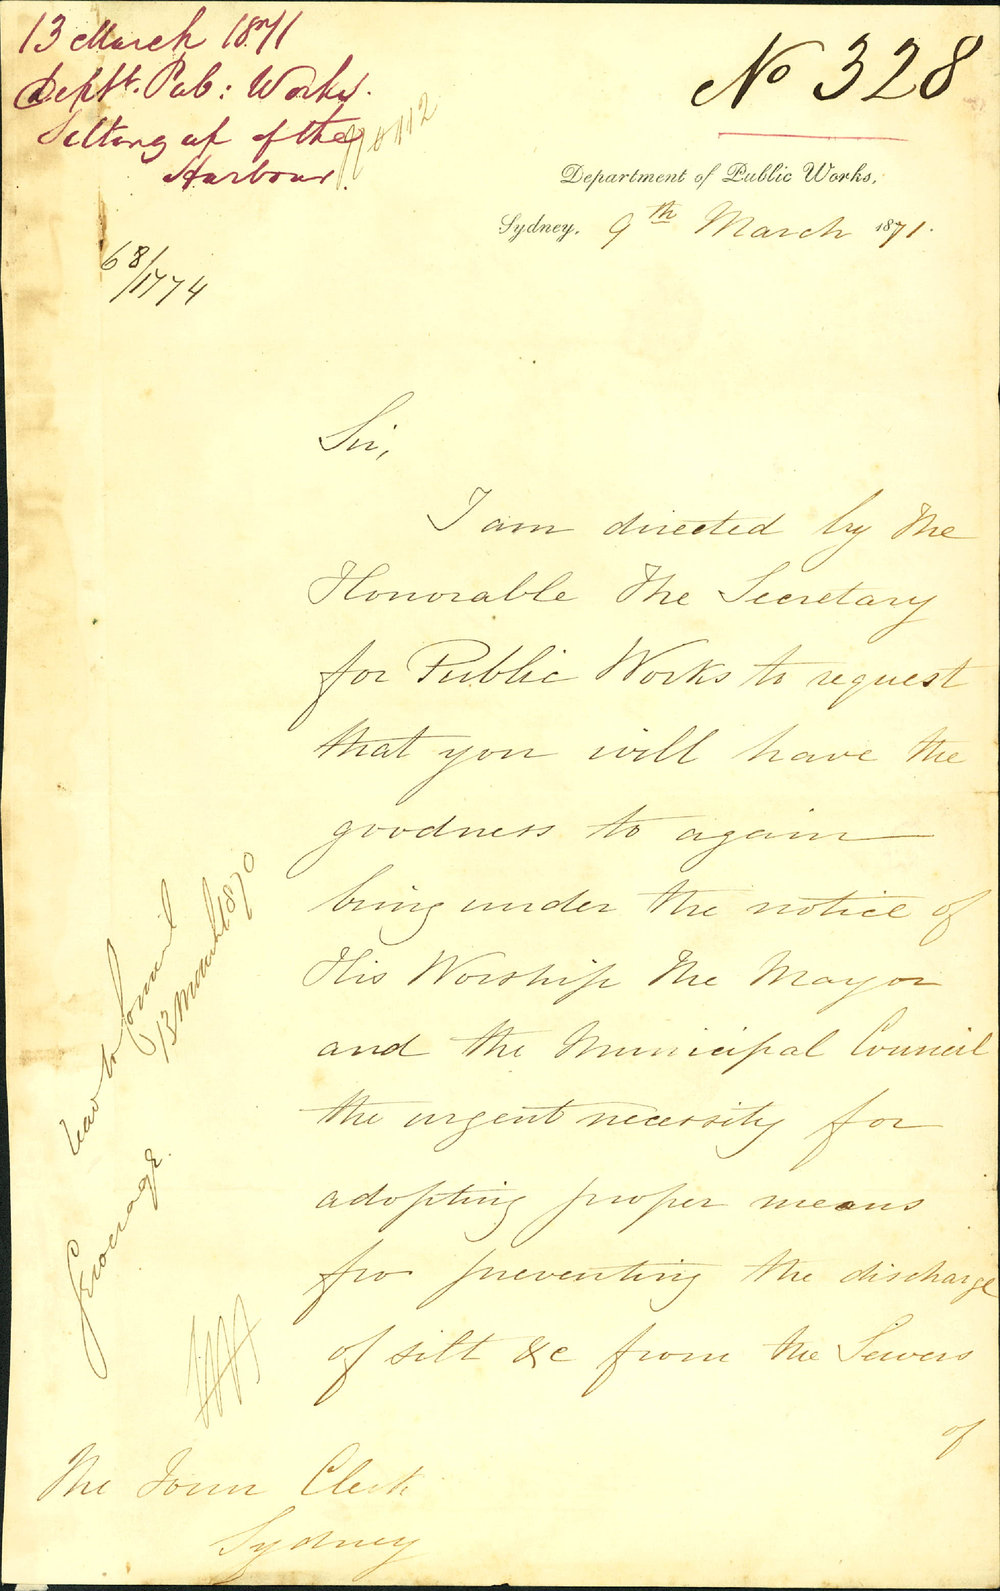 13 March 1871
Deptt. Pub: Works.
Silting up of the
Harbour.
No 328
Department of Public Works,
Sydney, 9th March 1871.
68/1774
Sir,
I am directed by the
Honorable The Secretary
for Public Works to request
that you will have the
goodness to again
bring under the notice of
His Worship The Mayor
and the Municipal Council
the urgent necessity for
adopting proper means
for preventing the discharge
of silt &c from the Sewers
of
The Town Clerk
Sydney
Council
13 March 1870